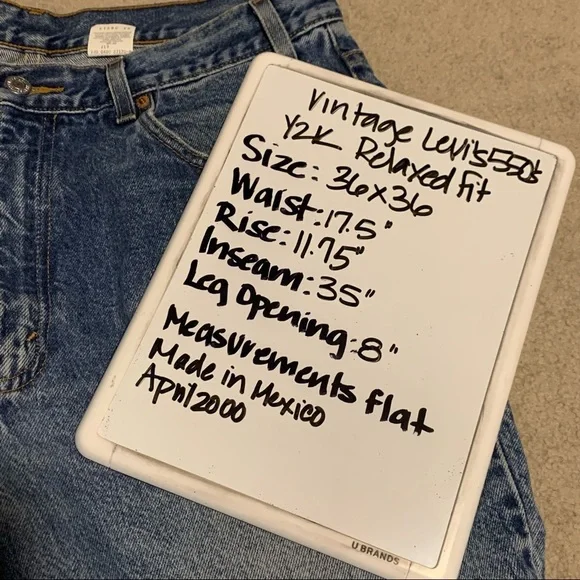 Vintage Levi's 550's
Y2K Relaxed Fit
Size: 36x36
Waist: 17.5"
Rise: 11.75"
Inseam: 35"
Leg Opening: 8"
Measurements flat
Made in Mexico
April 2000
U BRANDS